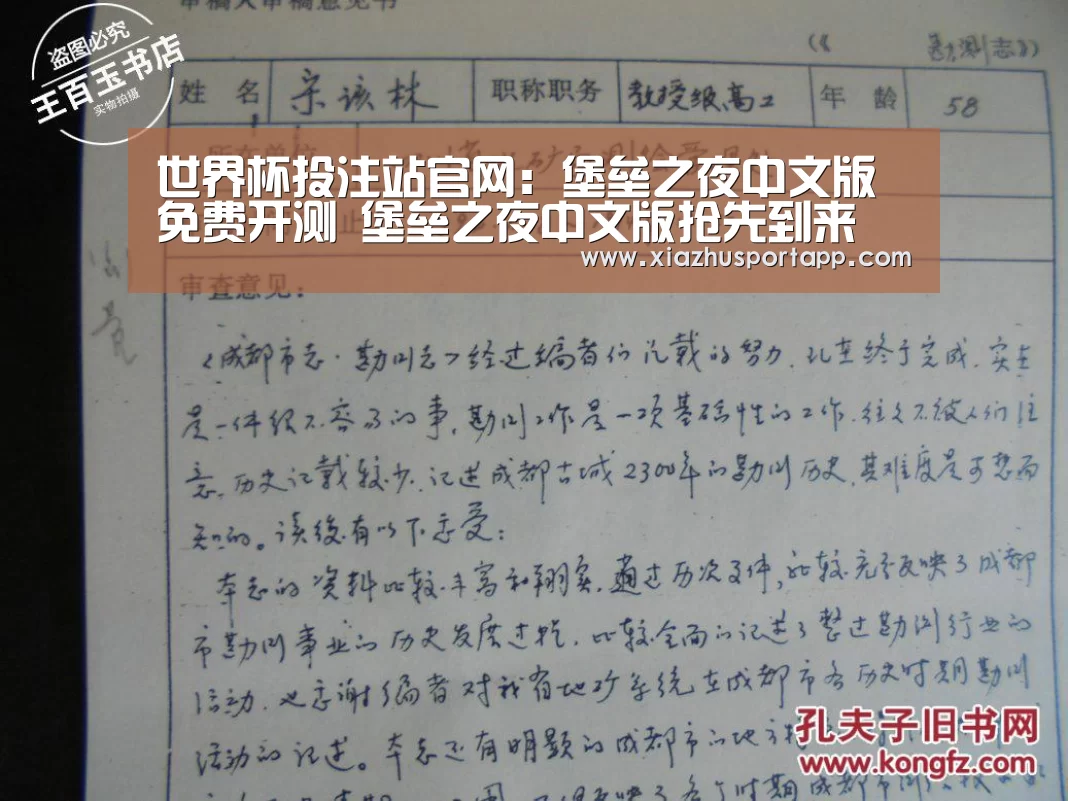 审稿人审稿意见书
勘测志
盗图必究
王百玉书店
实物拍摄
姓 名 宋该林 职称职务 教授级高工 年 龄 58
所在单位
世界杯投注站官网：堡垒之夜中文版
免费开测 堡垒之夜中文版抢先到来
www.xiazhusportapp.com
审查意见：
《成都市志·勘测志》经过编者们的努力，终于完成，实在
是一件很不容易的事，勘测工作是一项基础性的工作，往往不被人们注
意，历史记载较少，记述成都古城2300年的勘测历史，其难度是可想而
知的。读后有以下感受：
本志的资料比较丰富和翔实，通过历次文件，比较充分反映了成都
市勘测事业的历史发展过程，比较全面的记述了整过勘测行业的
活动，也感谢编者对我省地矿系统在成都市各历史时期勘测
活动的记述。本志还有明显的成都市的地方
时期成都市
孔夫子旧书网
www.kongfz.com